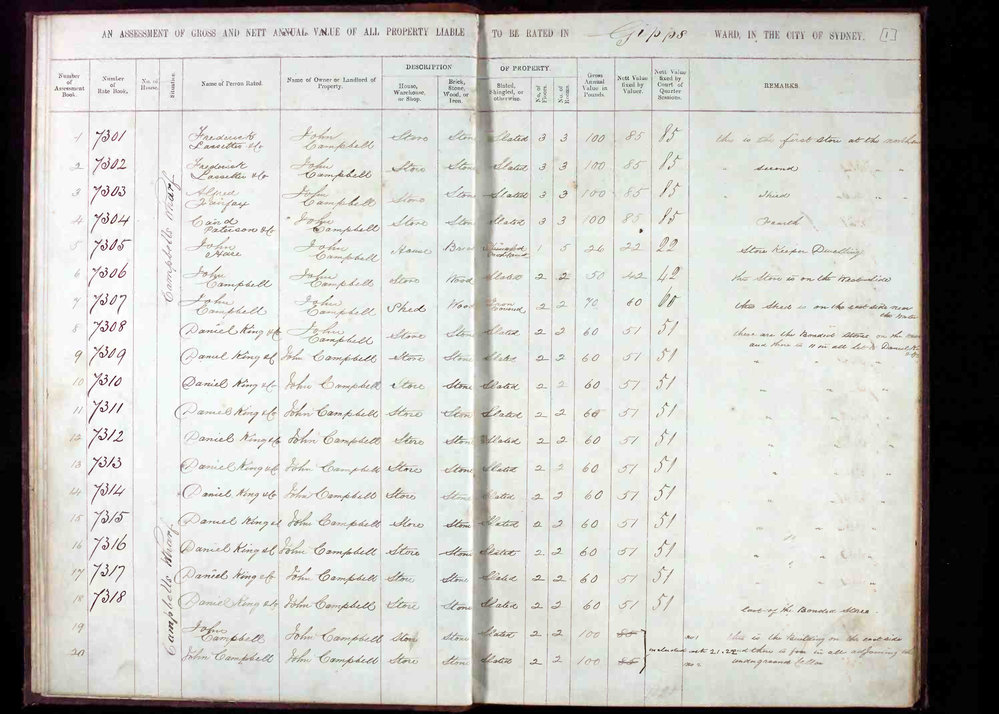 AN ASSESSMENT OF GROSS AND NETT ANNUAL VALUE OF ALL PROPERTY LIABLE TO BE RATED IN Gipps WARD, IN THE CITY OF SYDNEY. [1]
DESCRIPTION OF PROPERTY.
Number of Assessment Book. Number of Rate Book. No. of House. Situation. Name of Person Rated. Name of Owner or Landlord of Property. House, Warehouse, or Shop. Brick, Stone, Wood, or Iron. Slated, Shingled, or otherwise. No. of Floors. No. of Rooms. Gross Annual Value in Pounds. Nett Value fixed by Valuer. Nett Value fixed by Court of Quarter Sessions. REMARKS.
Campbells Wharf
1 7301 Frederick Lassetter & Co John Campbell Store Stone Slated 3 3 100 85 85 this is the first Store at the
2 7302 Frederick Lassetter & Co John Campbell Store Stone Slated 3 3 100 85 85 " second
3 7303 Alfred Fairfax John Campbell Store Stone Slated 3 3 100 85 85 " Third
4 7304 Paterson & Co John Campbell Store Stone Slated 3 3 100 85 85 " Fourth
5 7305 John Hare John Campbell House Brick 1 5 26 22 22 Store Keeper Dwelling
6 7306 John Campbell John Campbell Store Wood Slated 2 2 50 42 42 this Store is on the West side
7 7307 John Campbell John Campbell Shed Wood Iron 2 2 70 60 60 this Shed is on the east side near the Water
8 7308 Daniel King & Co John Campbell Store Stone Slated 2 2 60 51 51 these are the Bonded Stores on the
and there is 11 in all let to Daniel King & Co
9 7309 Daniel King & Co John Campbell Store Stone Slated 2 2 60 51 51
10 7310 Daniel King & Co John Campbell Store Stone Slated 2 2 60 51 51
11 7311 Daniel King & Co John Campbell Store Stone Slated 2 2 60 51 51
12 7312 Daniel King & Co John Campbell Store Stone Slated 2 2 60 51 51
13 7313 Daniel King & Co John Campbell Store Stone Slated 2 2 60 51 51
14 7314 Daniel King & Co John Campbell Store Stone Slated 2 2 60 51 51
Campbells Wharf
15 7315 Daniel King & Co John Campbell Store Stone Slated 2 2 60 51 51
16 7316 Daniel King & Co John Campbell Store Stone Slated 2 2 60 51 51
17 7317 Daniel King & Co John Campbell Store Stone Slated 2 2 60 51 51
18 7318 Daniel King & Co John Campbell Store Stone Slated 2 2 60 51 51 last of the Bonded Stores
19 John Campbell John Campbell Store Stone Slated 2 2 100 85 no 1 this is the Building on the east side
included with 21.22 and there is four in all adjoining
20 John Campbell John Campbell Store Stone Slated 2 2 100 85 no 2 underground Cellar